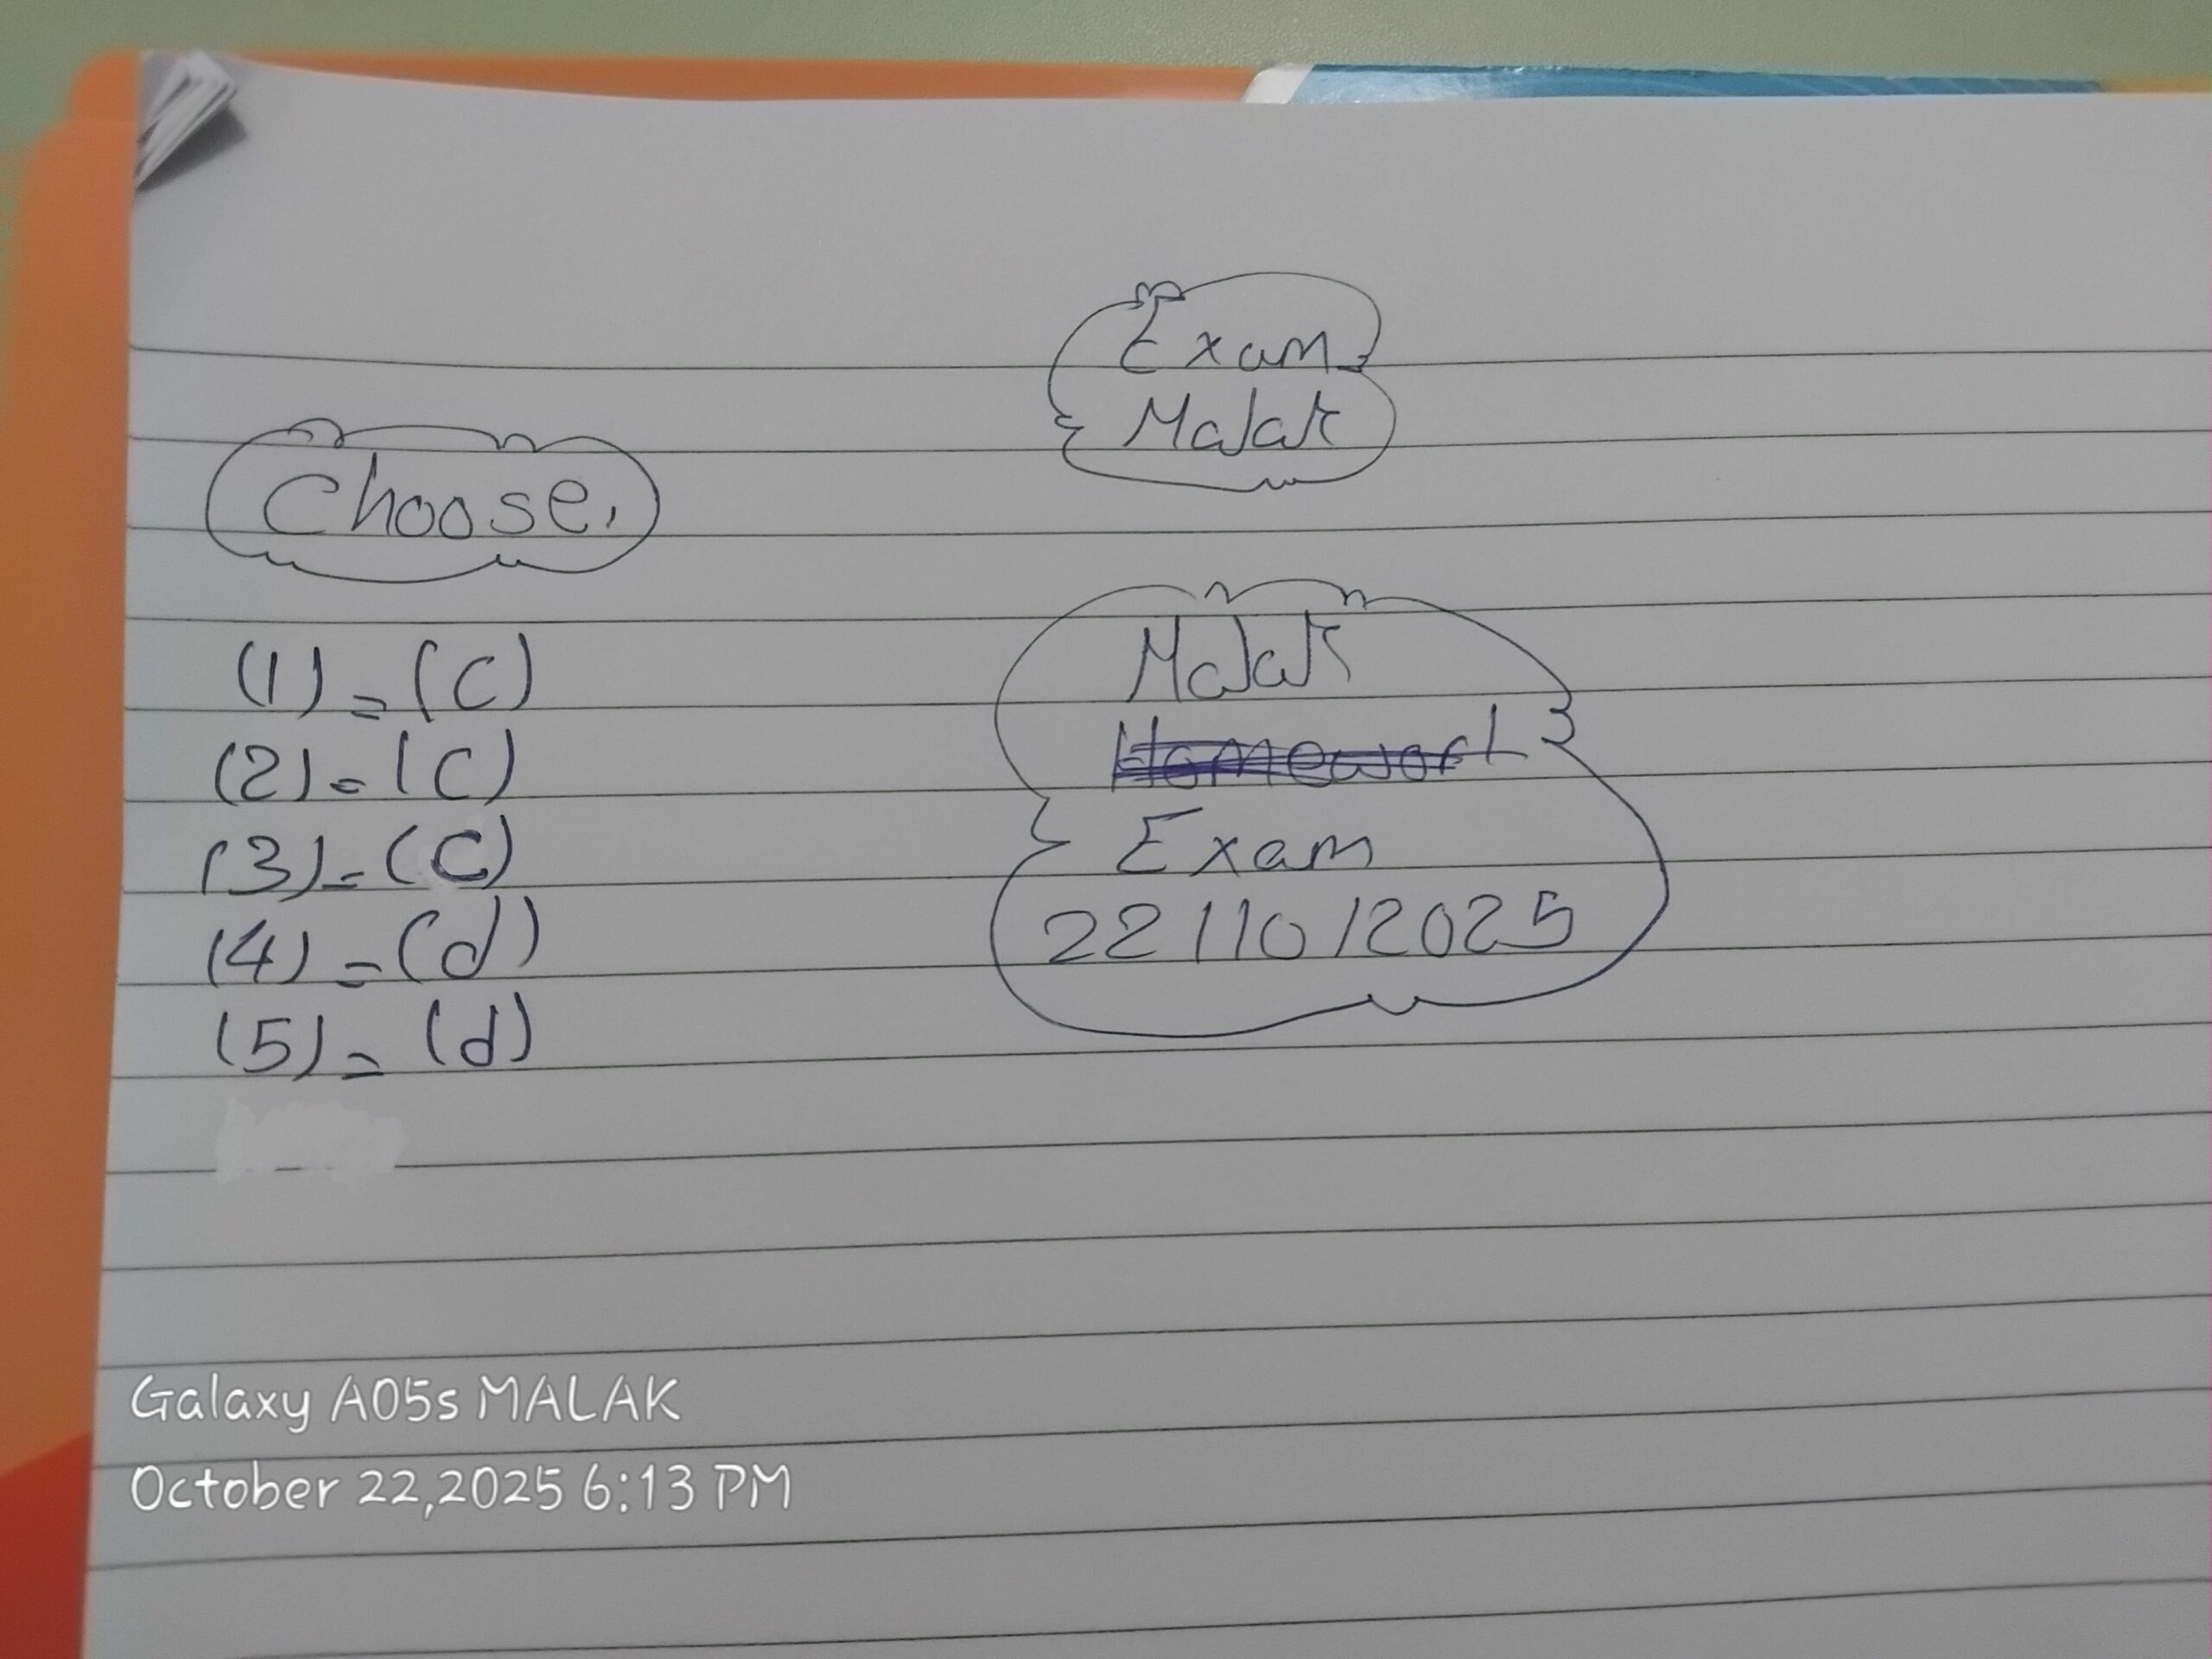 Exam
Malak
Choose,
(1) = (c)
(2) = (c)
(3) = (c)
(4) = (d)
(5) = (d)
Malak
Homework
Exam
22/10/2025
Galaxy A05s MALAK
October 22,2025 6:13 PM